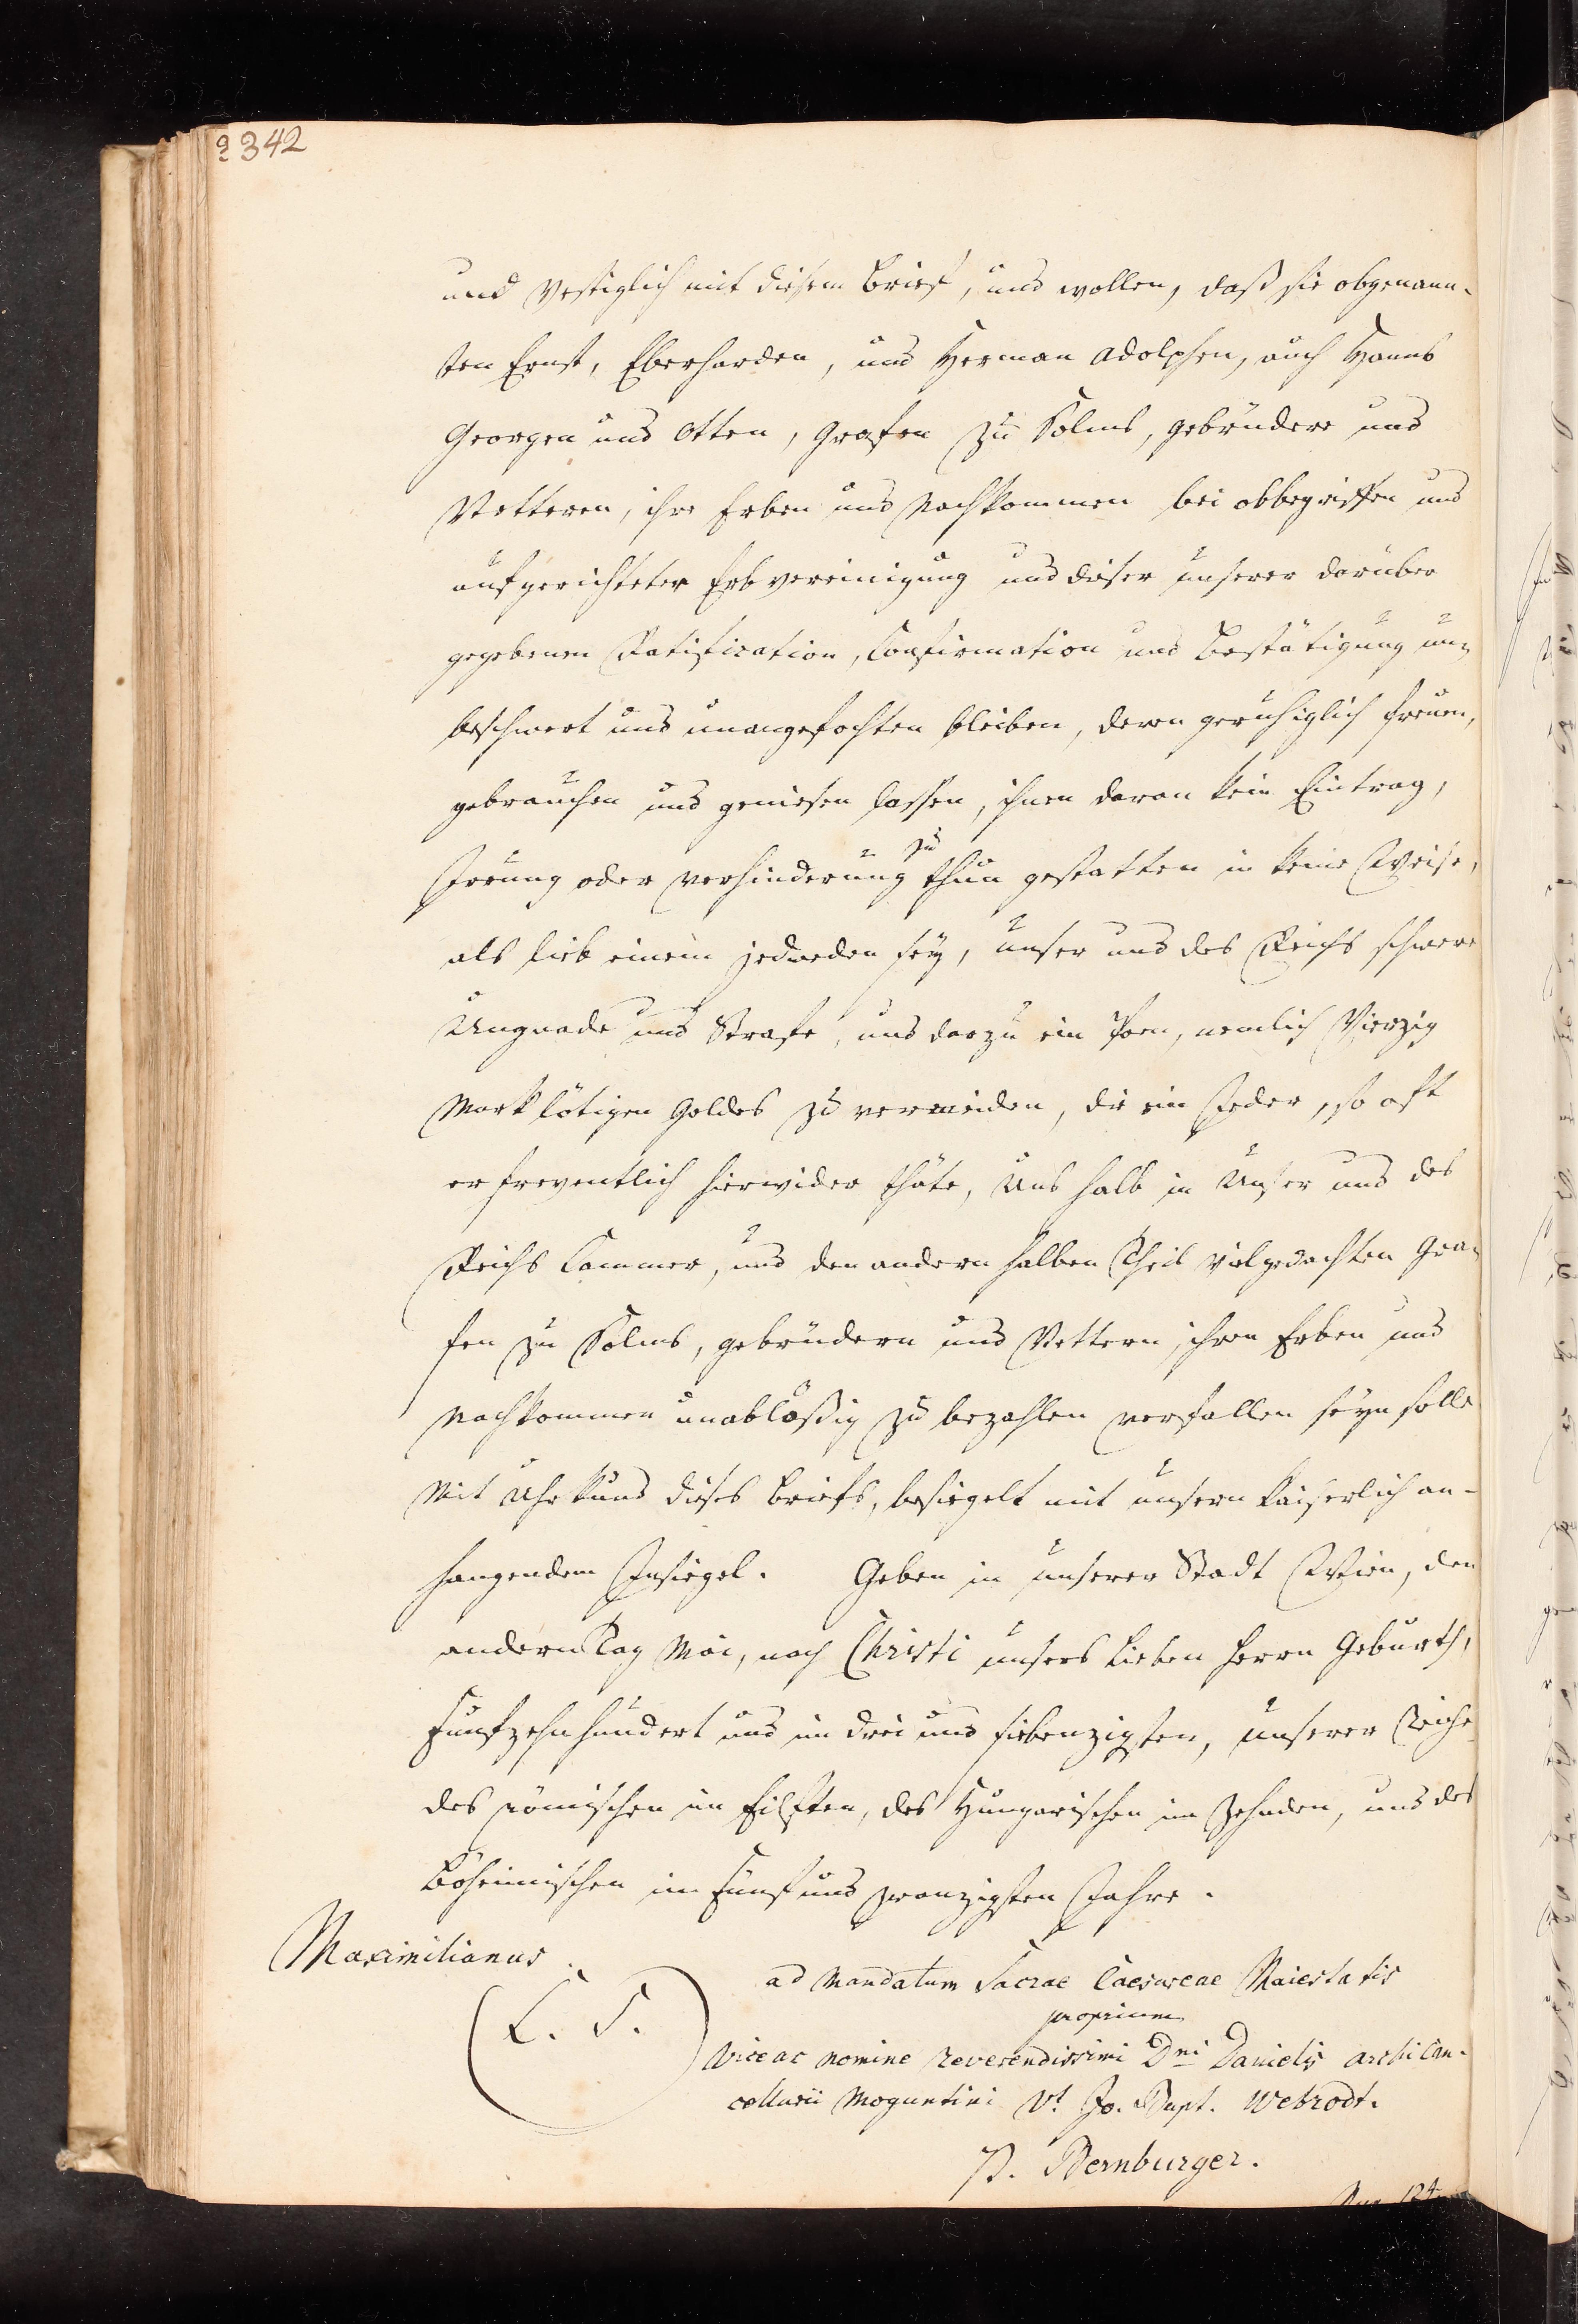 2342
und vestiglich mit diesem Brief, und wollen, daß sie obgenann-
ten Ernst, Eberharden, und Herman Adolphen, auch Hanns
Georgen und Otten, Grafen zu Solms, gebrüdere und
Vetteren, ihre Erben und Nachkommen bei obbegriffen und
aufgerichteter Erbvereinigung und dieser unserer darüber
gegebenen Ratification, Confirmation und Bestätigung un-
beschwert und unangefochten bleiben, deren geruhiglich freuen,
gebrauchen und geniesen lassen, ihnen daran kein Eintrag,
Irrung oder verhinderung zu thun gestatten in keine Weise,
als lieb einem jedweden sey, unser und des Reichs schwere
Ungnade und Strafe, und darzu ein Poen, nemlich Vierzig
Mark lötigen Goldes zu vermeiden, die ein Jeder, so oft
er freventlich hierwider thäte, Uns halb in Unser und des
Reichs Cammer, und den andern halben Theil vielgedachten Gra-
fen zu Solms, gebrüdern und Vettern, ihren Erben und
Nachkommen unabläßig zu bezahlen verfallen seyn solle
Mit Uhrkund dieses Briefs, besiegelt mit unsern Kaiserlich an-
hangendem Insiegel. Geben in unserer Stadt Wien, den
andern Tag Mai, nach Christi unsers lieben Herrn Geburth,
Funfzehnhundert und im drei und siebenzigsten, unserer Reiche
des römischen im Eilften, des Hungarischen im Zehnden, und des
Böheimischen im Fünf und zwanzigsten Jahre.
Maximilianus.
(L. S.)
ad Mandatum Sacrae Caesareae Maiestatis
proprium
Vice ac nomine reverendissimi Dni Danielis archi Can-
cellarii Moguntini Vt Jo. Bapt. Webrodt.
P. Bernburger.